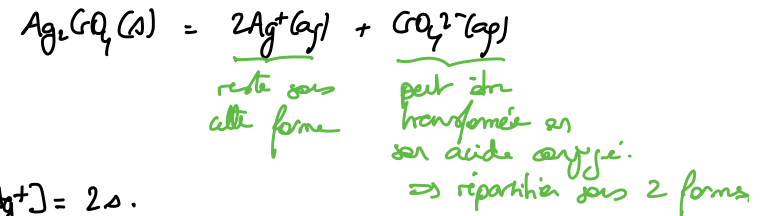 Ag₂CrO₄(s) = 2Ag⁺(aq) + CrO₄²⁻(aq)
reste sous peut être
cette forme transformée en
son acide conjugé.
⇒ répartition sous 2 formes
g⁺] = 2s.